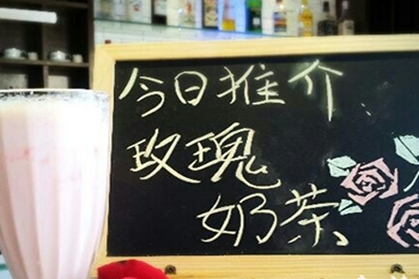 今日推介
玫瑰
奶茶